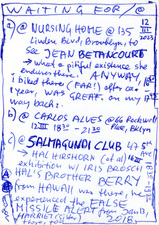 WAITING FOR / @
12 III 2023
a) @ NURSING HOME @ 135
Linden Blvd, Brooklyn, to
see JEAN BETANCOURT
→ what a pitiful existence she
endures there. ANYWAY, I
biked there (FAR!) after
1 year, WAS GREAT, on my
way back:
b) @ CARLOS ALVES @ 64 Rockwell
12 III 18³⁰ – 21³⁰ Place, Bklyn
c) @ SALMAGUNDI CLUB 47 5th
→ HAL HIRSHORN (et al) AVE
exhibition w/ IRIS BROSCH
HAL'S BROTHER BERRY
from HAWAII was there, he
experienced the FALSE
MISSILE ALERT from Jan 13,
HARRIET 2018.